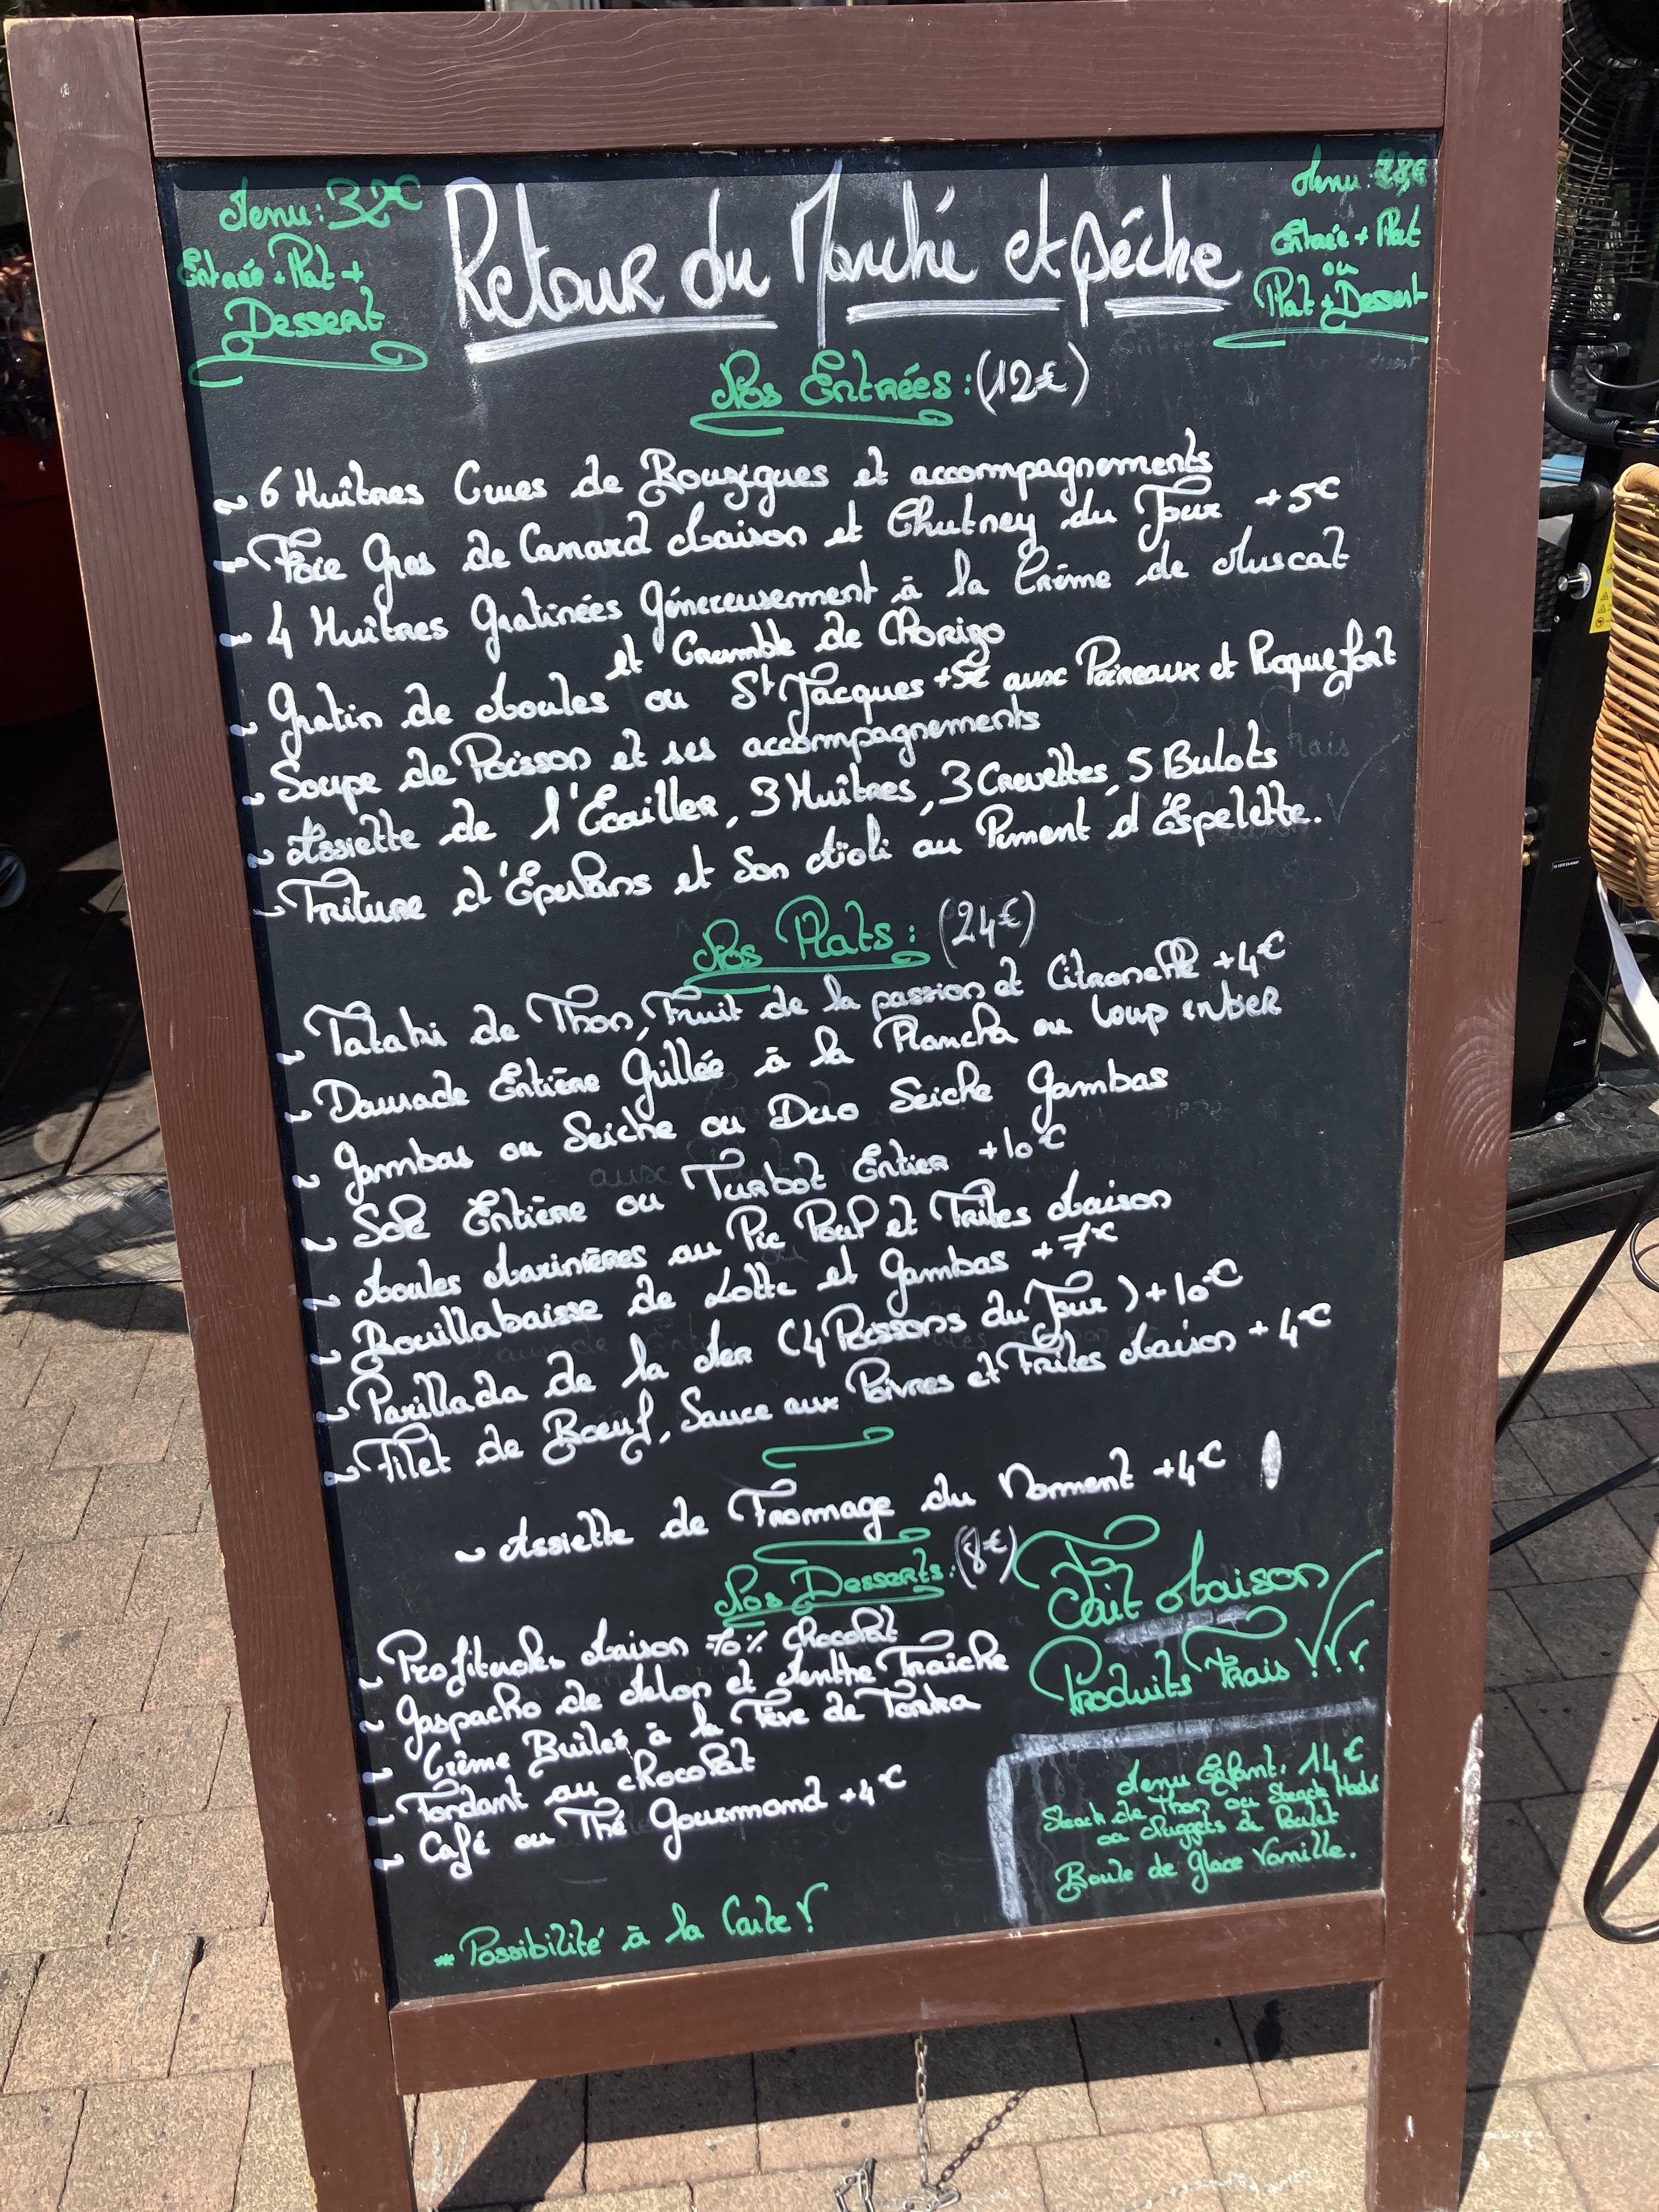 Menu: 32€
Entrée + Plat +
Dessert
Retour du Marché et pêche
Menu: 28€
Entrée + Plat
ou
Plat + Dessert
Nos Entrées: (12€)
~ 6 Huîtres Crues de Bouzigues et accompagnements
~ Foie Gras de Canard Maison et Chutney du Jour +5€
~ 4 Huîtres Gratinées Génereusemment à la Crème de Muscat
et Crumble de Chorizo
~ Gratin de Moules ou St Jacques +5€ aux Poireaux et Roquefort
~ Soupe de Poisson et ses accompagnements
~ Assiette de l'Écailler, 3 Huîtres, 3 Crevettes, 5 Bulots
~ Friture d'Éperlans et Son Aïoli au Piment d'Éspelette.
Nos Plats: (24€)
~ Tataki de Thon, Fruit de la passion et Citronelle +4€
~ Daurade Entière Grillée à la Plancha ou Loup entier
~ Gambas ou Seiche ou Duo Seiche Gambas
~ Sole Entière ou Turbot Entier +10€
~ Moules Marinières au Pic Poul et Frites Maison
~ Bouillabaisse de Lotte et Gambas +7€
~ Parillada de la Mer (4 Poissons du Jour) +10€
~ Filet de Bœuf, Sauce aux Poivres et Frites Maison +4€
~ Assiette de Fromage du Moment +4€
Nos Desserts: (8€)
~ Profiteroles Maison 70% Chocolat
~ Gaspacho de Melon et Menthe Fraîche
~ Crème Brûlée à la Fève de Tonka
~ Fondant au chocolat
~ Café ou Thé Gourmand +4€
Fait Maison
Produits Frais !!!
Menu Enfant: 14€
Steack de Thon ou Steack Haché
ou Nuggets de Poulet
Boule de Glace Vanille.
* Possibilité à la Carte !